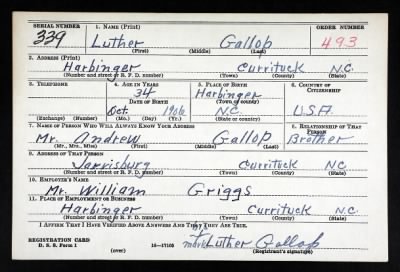 SERIAL NUMBER 1. NAME (Print) ORDER NUMBER
339 Luther Gallop 493
(First) (Middle) (Last)
2. ADDRESS (Print)
Harbinger Currituck N.C.
(Number and street or R. F. D. number) (Town) (County) (State)
3. TELEPHONE 4. AGE IN YEARS 5. PLACE OF BIRTH 6. COUNTRY OF CITIZENSHIP
34 Harbinger
DATE OF BIRTH (Town or county)
Oct. 1906 N.C. U.S.A.
(Exchange) (Number) (Mo.) (Day) (Yr.) (State or country)
7. NAME OF PERSON WHO WILL ALWAYS KNOW YOUR ADDRESS 8. RELATIONSHIP OF THAT PERSON
Mr. Andrew Gallop Brother
(Mr., Mrs., Miss) (First) (Middle) (Last)
9. ADDRESS OF THAT PERSON
Jarvisburg Currituck N.C.
(Number and street or R. F. D. number) (Town) (County) (State)
10. EMPLOYER'S NAME
Mr. William Griggs
11. PLACE OF EMPLOYMENT OR BUSINESS
Harbinger Currituck N.C.
(Number and street or R. F. D. number) (Town) (County) (State)
I AFFIRM THAT I HAVE VERIFIED ABOVE ANSWERS AND THAT THEY ARE TRUE.
REGISTRATION CARD
D. S. S. Form 1 (over) 16—17105 mark Luther Gallop
(Registrant's signature)